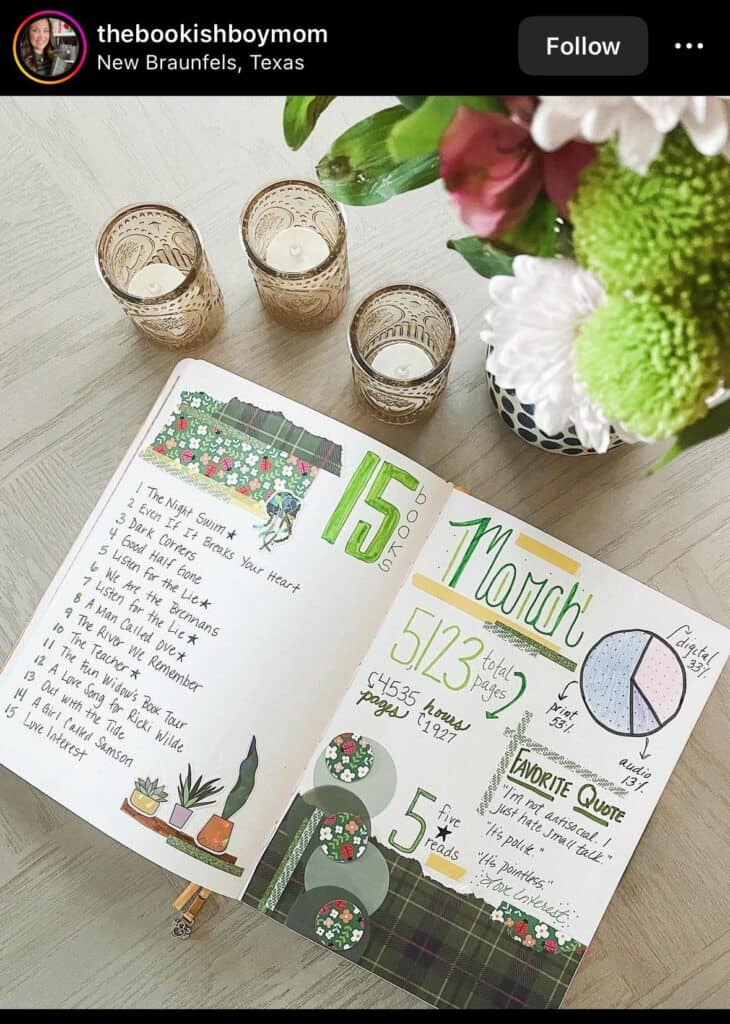 thebookishboymom
New Braunfels, Texas
Follow
15 books
1 The Night Swim ★
2 Even If It Breaks Your Heart
3 Dark Corners
4 Good Half Gone
5 Listen for the Lie ★
6 We Are the Brennans
7 Listen for the Lie ★
8 A Man Called Ove ★
9 The River We Remember
10 The Teacher ★
11 The Fun Widow's Book Tour
12 A Love Song for Ricki Wilde
13 Out with the Tide
14 A Girl Called Samson
15 Love Interest
March
5,123 total
pages
4535 hours
pages 1927
digital
33%
print
53%
audio
13%
5 five
★
reads
FAVORITE QUOTE
"I'm not antisocial. I
just hate small talk."
"It's polite."
"It's pointless."
Love Interest